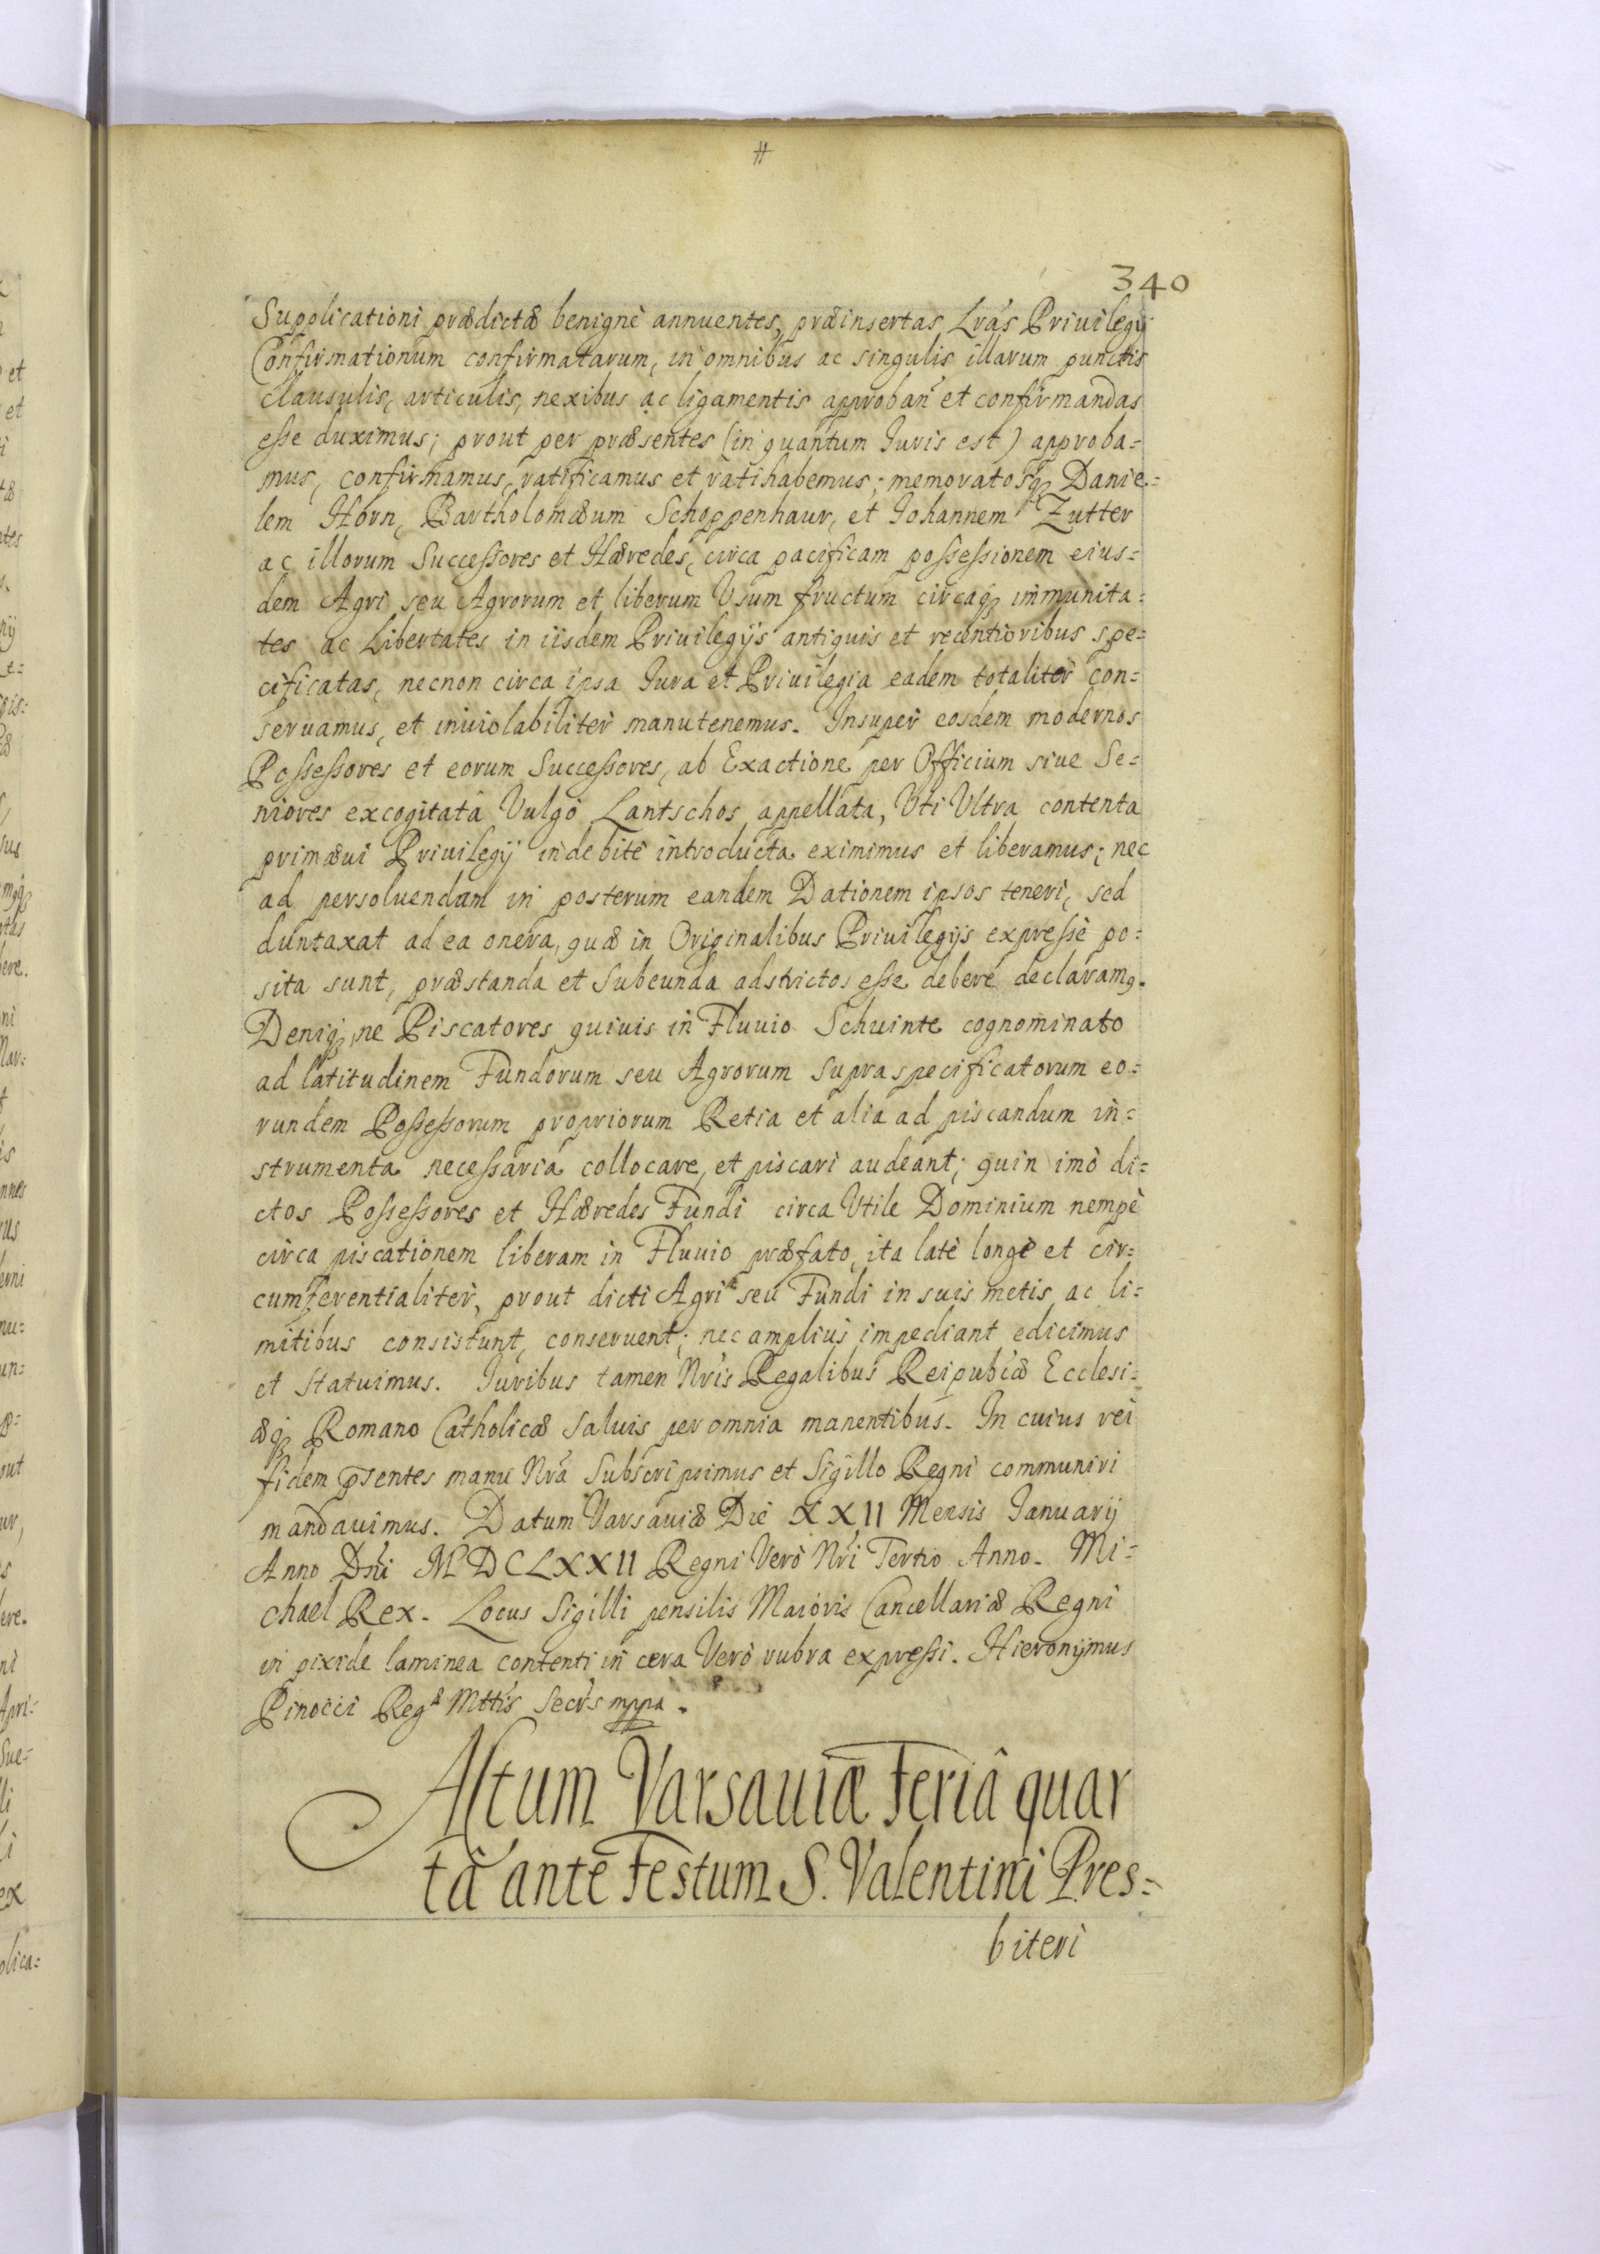 #
340
Supplicationi prædictæ benignè annuentes, præinsertas Lrás Priuilegij
Confirmationum confirmatarum, in omnibus ac singulis illarum punctis
clausulis, articulis, nexibus ac ligamentis approban̄ et confirmandas
esse duximus; prout per præsentes (in quantum Iuris est) approba=
mus, confirmamus, ratificamus et ratihabemus; memoratosq Danie=
lem Horn, Bartholomæum Schoppenhaur, et Iohannem Zutter
ac illorum Successores et Hæredes, circa pacificam possessionem eius=
dem Agri seu Agrorum et liberum Vsum fructum circaq immunita=
tes ac Libertates in iisdem Priuilegijs antiquis et recentioribus spe=
cificatas, necnon circa ipsa Iura et Priuilegia eadem totalitèr con=
seruamus, et inuiolabilitèr manutenemus. Insupèr eosdem modernos
Possessores et eorum Successores, ab Exactione per Officium siue Se=
niores excogitatâ Vulgò Lantschos appellata, Vti Vltra contenta
primæui Priuilegij indebitè introducta eximimus et liberamus; nec
ad persoluendam in posterum eandem Dationem ipsos teneri, sed
duntaxat ad ea onera, quæ in Originalibus Priuilegijs expressè po=
sita sunt, præstanda et Subeunda adstrictos esse deberè declaramg.
Deniq, ne Piscatores quiuis in Fluuio Schuinte cognominato
ad latitudinem Fundorum seu Agrorum supraspecificatorum eo=
rundem Possessorum propriorum Retia et alia ad piscandum in=
strumenta necessaria collocare, et piscari audeant; quin imò di=
ctos Possessores et Hæredes Fundi circa Vtile Dominium nempè
circa piscationem liberam in Fluuio præfato, ita latè longè et cir=
cumferentialitèr, prout dicti Agri seu Fundi in suis metis ac li=
mitibus consistunt, conseruent; nec ampliùs impediant edicimus
et statuimus. Iuribus tamen Nrís Regalibus Reipubcæ Ecclesi=
æq Romano Catholicæ saluis per omnia manentibus. In cuius rei
fidem pṡentes manu Nrá Subscripsimus et Sigillo Regni communiri
mandauimus. Datum Varsauiæ Die XXII Mensis Ianuarij
Anno Dni MDCLXXII Regni Verò Nrí Tertio Anno. Mi=
chael Rex. Locus Sigilli pensilis Maioris Cancellariæ Regni
in pixide laminea contenti in cera Verò rubra expressi. Hieronijmus
Pinocci Reg Mttis Secrs mppa.
Actum Varsauiæ Feriâ quar
tâ ante Festum S. Valentini Pres=
biteri